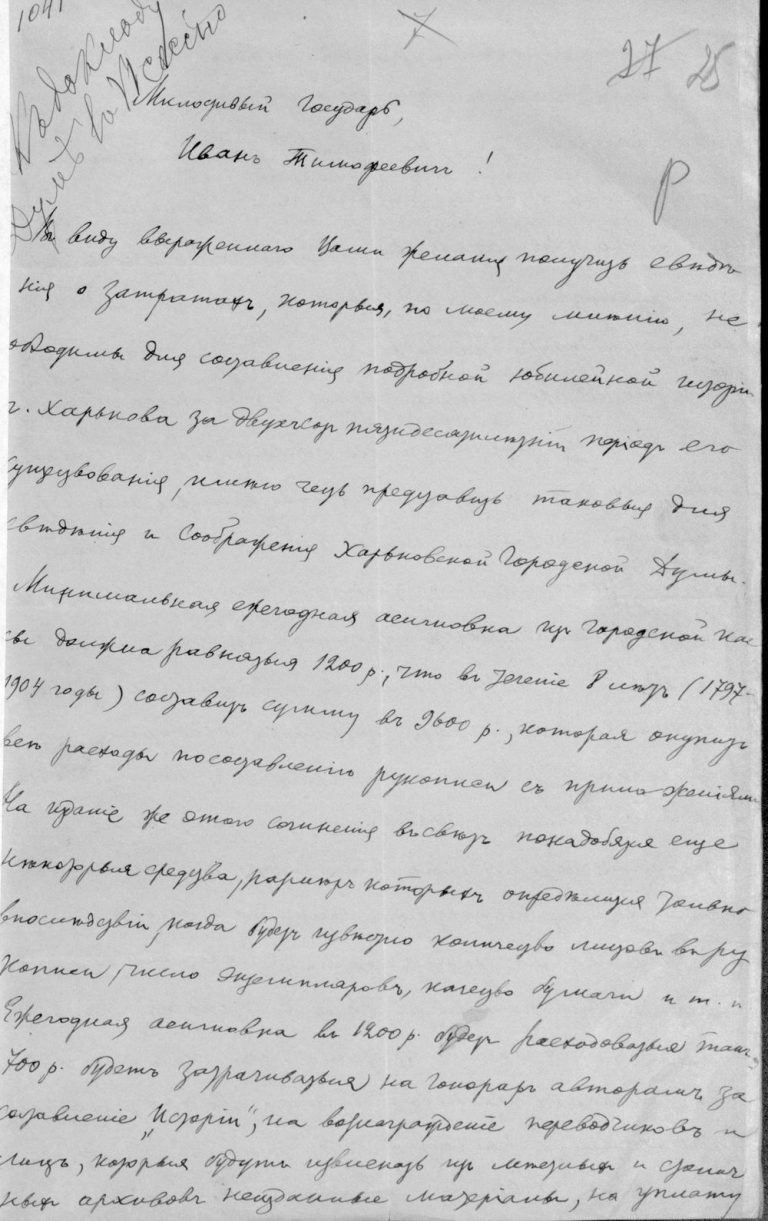 1041
7
27 25
Къ докладу
Думѣ
Милостивый Государь,
Иванъ Тимофеевичъ!
Р
Въ виду выраженнаго Вами желанія получить свѣдѣ
нія о затратахъ, которыя, по моему мнѣнію, не
обходимы для составленія подробной юбилейной исторіи
г. Харькова за двухсотпятидесятилѣтній періодъ его
существованія, имѣю честь представить таковыя для
свѣдѣнія и соображенія Харьковской Городской Думы.
Минимальная ежегодная ассигновка изъ городской кас
сы должна равняться 1200 р., что въ теченіе 8 лѣтъ (1797-
1904 годы) составитъ сумму въ 9600 р., которая окупитъ
всѣ расходы по составленію рукописи съ приложеніями
На изданіе же этого сочиненія въ свѣтъ понадобятся еще
нѣкоторыя средства, размѣръ которыхъ опредѣлится только
впослѣдствіи, когда будетъ извѣстно количество листовъ въ ру
кописи, число экземпляровъ, качество бумаги и т. п.
Ежегодная ассигновка въ 1200 р. будетъ расходоваться такъ:
700 р. будетъ затрачиваться на гонораръ авторамъ за
составленіе „Исторіи", на вознагражденіе переводчиковъ и
лицъ, которыя будутъ извлекать изъ мѣстныхъ и столич
ныхъ архивовъ неизданные матеріалы, на уплату